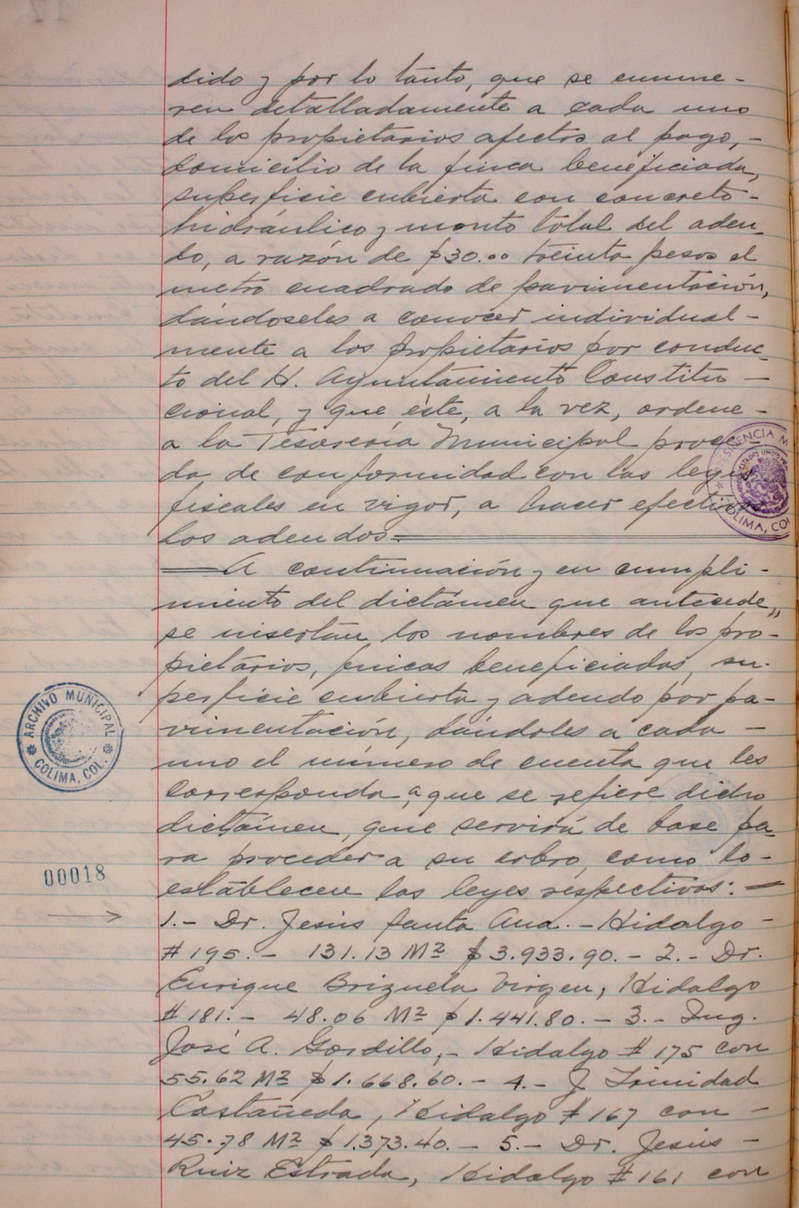 dido y por lo tanto, que se enume-
ren detalladamente a cada uno
de los propietarios afectos al pago,-
domicilio de la finca beneficiada,
superficie cubierta con concreto-
hidráulico y monto total del adeu-
do, a razón de $30.00 treinta pesos el
metro cuadrado de pavimentación,
dándoseles a conocer individual-
mente a los propietarios por conduc-
to del H. Ayuntamiento Constitu-
cional, y que éste, a la vez, ordene-
a la Tesorería Municipal proce-
da de conformidad con las leyes
fiscales en vigor, a hacer efectivos
los adeudos.
A continuación y en cumpli-
miento del dictámen que antecede,
se insertan los nombres de los pro-
pietarios, fincas beneficiadas, su-
perficie cubierta y adeudo por pa-
vimentación, dándoles a cada
uno el número de cuenta que les
corresponda a que se refiere dicho
dictámen, que servirá de base pa-
ra proceder a su cobro, como lo-
establecen las leyes respectivas:
1.- Dr. Jesús Santa Ana.- Hidalgo-
# 195.- 131.13 M2 $3.933.90.- 2.- Dr.
Enrique Brizuela Virgen, Hidalgo
# 181.- 48.06 M2 $1.441.80.- 3.- Ing.
José A. Gordillo,- Hidalgo # 175 con
55.62 M2 $1.668.60.- 4.- J. Trinidad
Castañeda, Hidalgo # 167 con-
45.78 M2 $1.373.40.- 5.- Dr. Jesús-
Ruiz Estrada, Hidalgo # 161 con
ARCHIVO MUNICIPAL
COLIMA, COL.
00018
COLIMA, CO